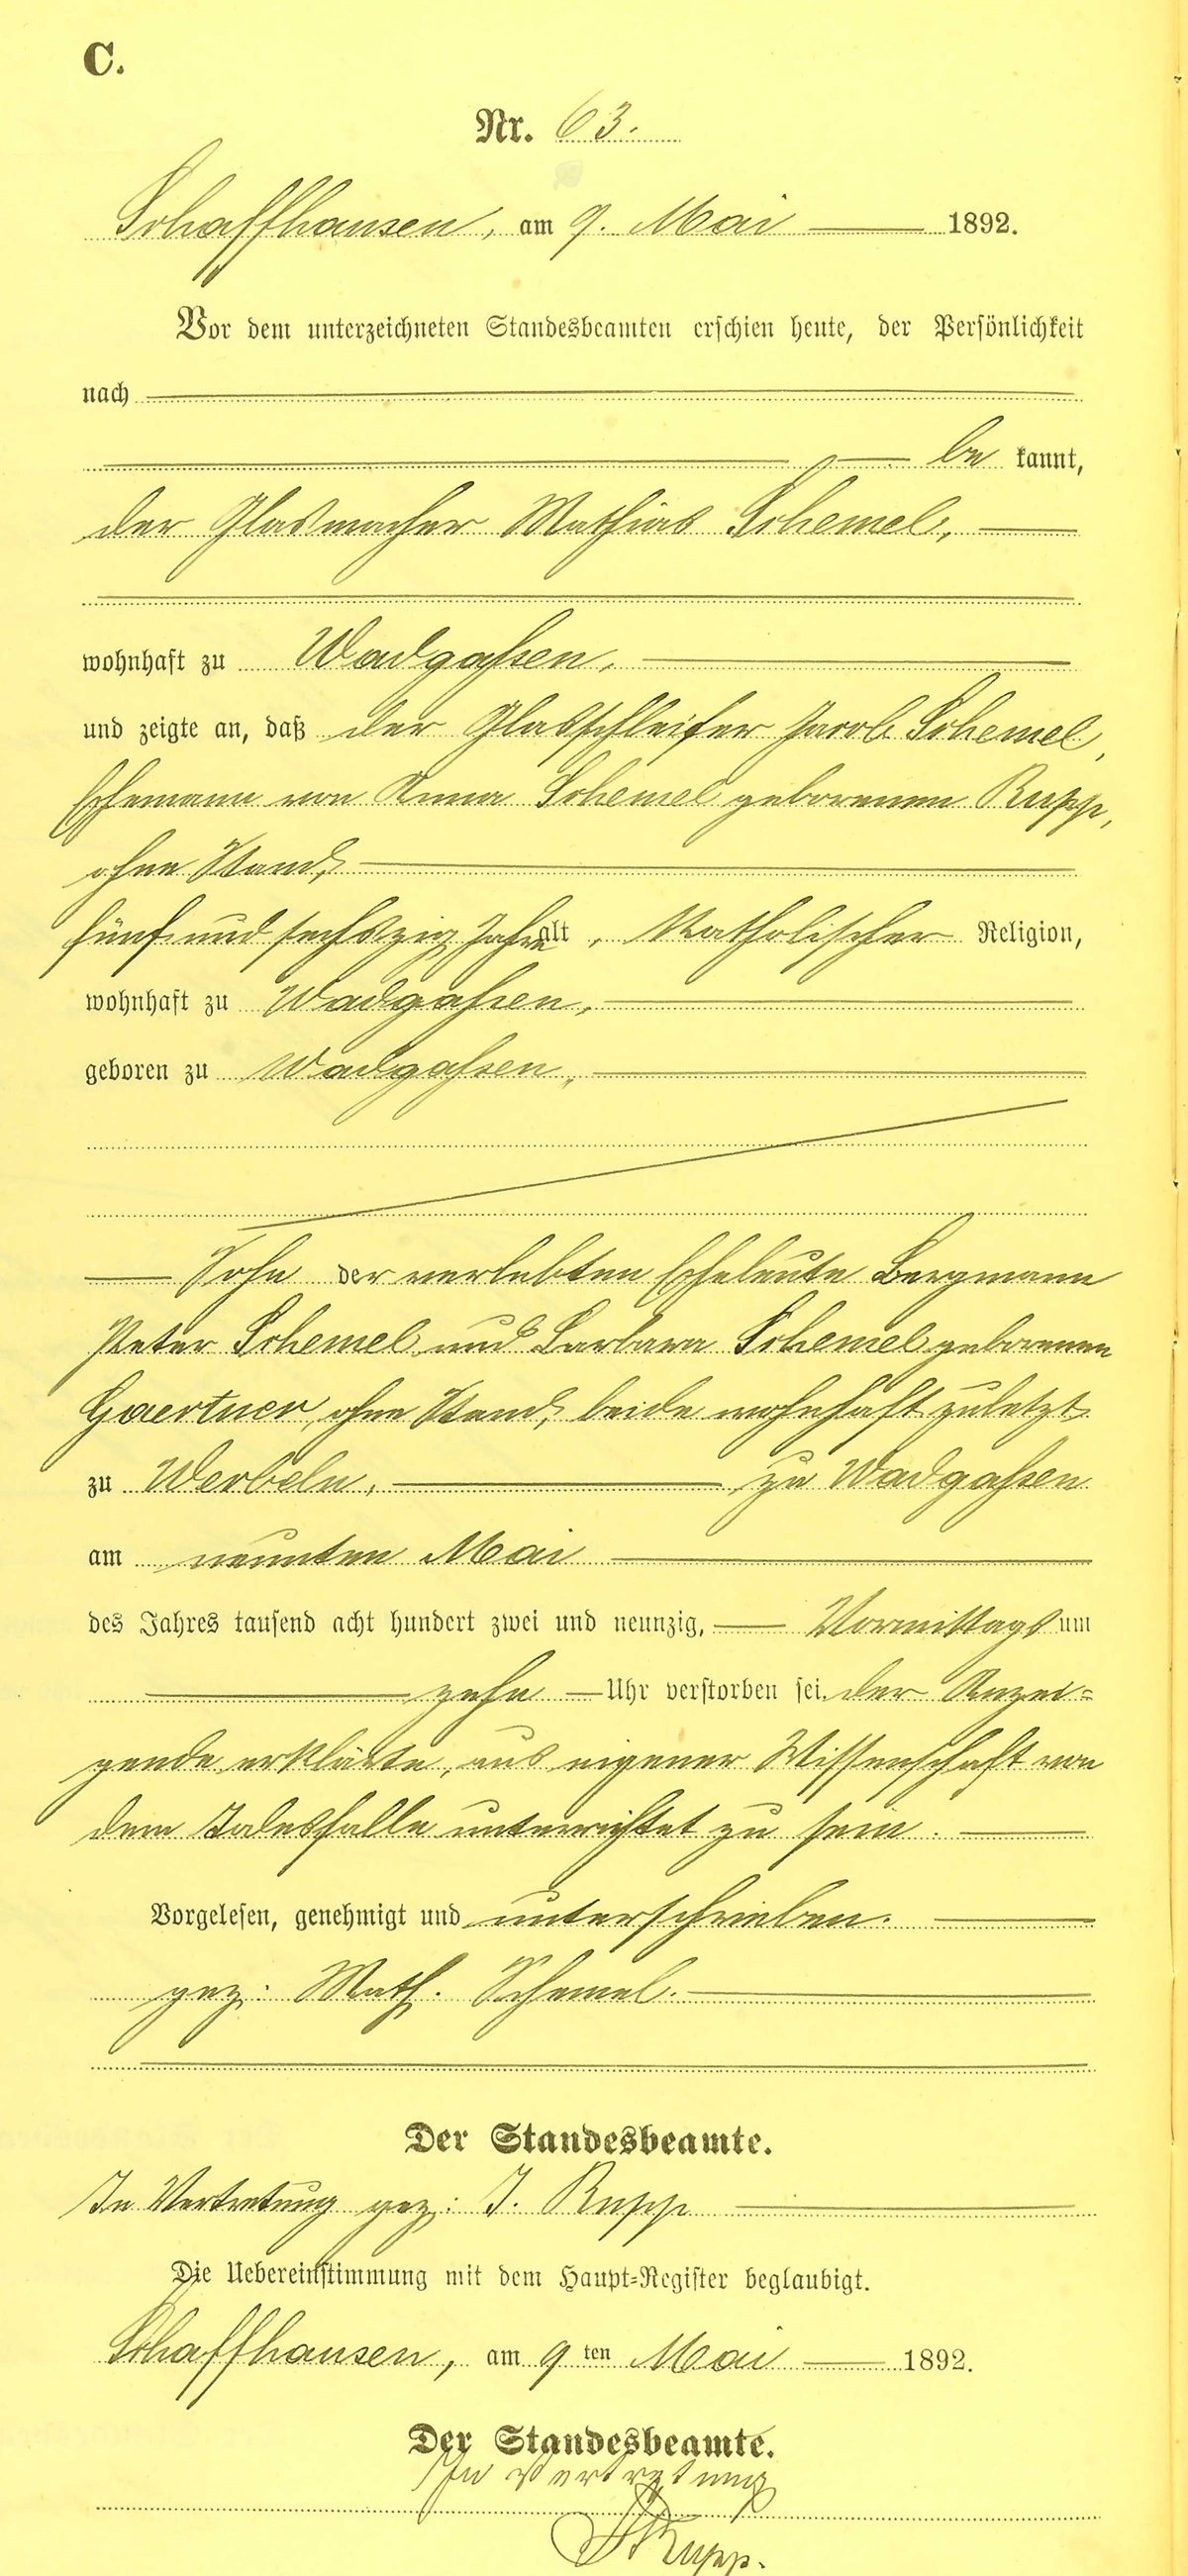 C.
Nr. 63.
Schaffhausen, am 9. Mai 1892.
Vor dem unterzeichneten Standesbeamten erschien heute, der Persönlichkeit
nach
be kannt,
der Glasmacher Mathias Schemel,
wohnhaft zu Wadgassen,
und zeigte an, daß der Glasschleifer Jacob Schemel,
Ehemann von Anna Schemel geborenen Rupp,
ohne Stand,
fünf und sechszig Jahre alt, Katholischer Religion,
wohnhaft zu Wadgassen,
geboren zu Wadgassen,
Sohn der verlebten Eheleute Bergmann
Peter Schemel und Barbara Schemel geborenen
Gaertner, ohne Stand, beide wohnhaft zuletzt
zu Werbeln, zu Wadgassen
am neunten Mai
des Jahres tausend acht hundert zwei und neunzig, Vormittags um
zehn Uhr verstorben sei. der Anzei=
gende erklärte, aus eigener Wissenschaft von
dem Todesfalle unterrichtet zu sein.
Vorgelesen, genehmigt und unterschrieben.
gez: Math. Schemel.
Der Standesbeamte.
In Vertretung gez: J. Rupp
Die Uebereinstimmung mit dem Haupt=Register beglaubigt.
Schaffhausen, am 9ten Mai 1892.
Der Standesbeamte.
In Vertretung
J Rupp.